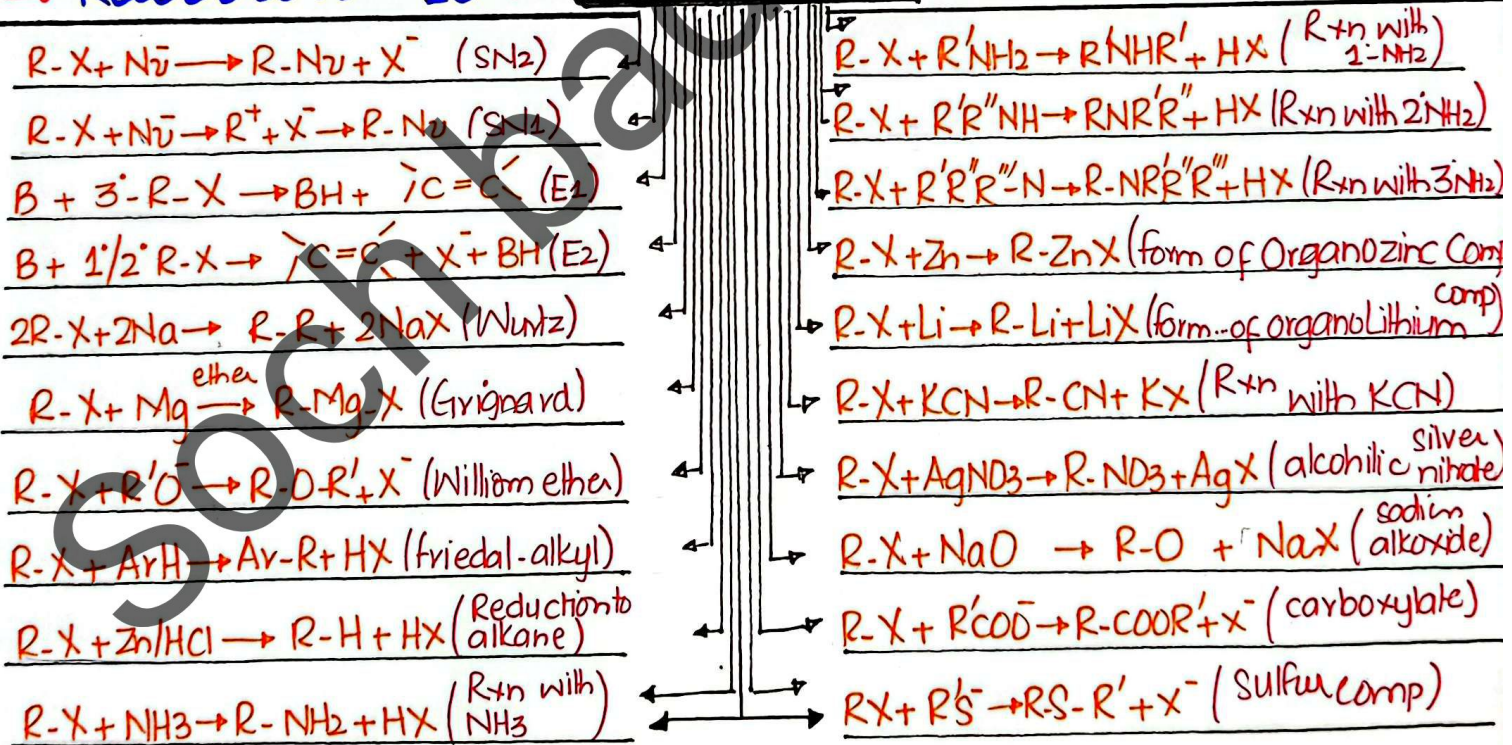 R-X + Nū → R-Nu + X⁻ (SN2)
R-X + Nū → R⁺ + X⁻ → R-Nu (SN1)
B + 3°-R-X → BH + >C=C< (E1)
B + 1°/2° R-X → >C=C< + X⁻ + BH (E2)
2R-X + 2Na → R-R + 2NaX (Wurtz)
R-X + Mg ether→ R-Mg-X (Grignard)
R-X + R'O⁻ → R-O-R' + X⁻ (Williom ether)
R-X + ArH → Ar-R + HX (friedal-alkyl)
R-X + Zn/HCl → R-H + HX (Reduction to
alkane)
R-X + NH3 → R-NH2 + HX (Rxn with
NH3)
R-X + R'NH2 → RNHR' + HX (Rxn with
1°-NH2)
R-X + R'R"NH → RNR'R" + HX (Rxn with 2°NH2)
R-X + R'R"R'''-N → R-NR'R"R''' + HX (Rxn with 3°NH2)
R-X + Zn → R-ZnX (form of Organozinc Com
R-X + Li → R-Li + LiX (form..of organoLithium comp)
R-X + KCN → R-CN + KX (Rxn with KCN)
R-X + AgNO3 → R-NO3 + AgX (alcohilic silver
nitrate)
R-X + NaO → R-O + NaX (sodim
alkoxide)
R-X + R'COO⁻ → R-COOR' + X⁻ (carboxylate)
RX + R'S⁻ → RS-R' + X⁻ (Sulfur comp)
Soch